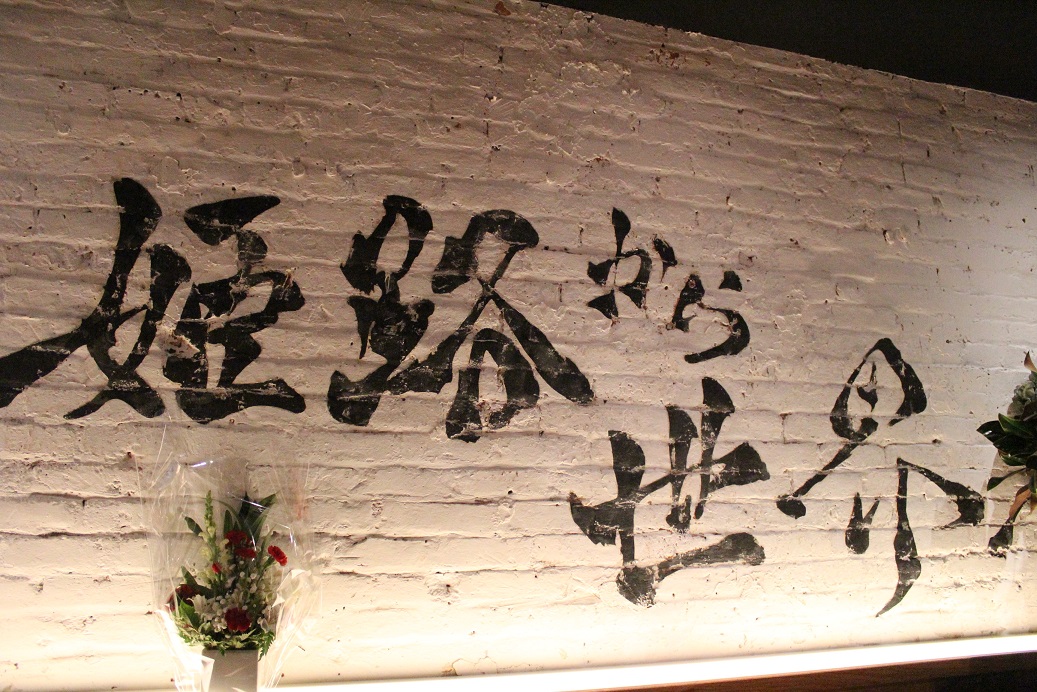 姫路から
世界